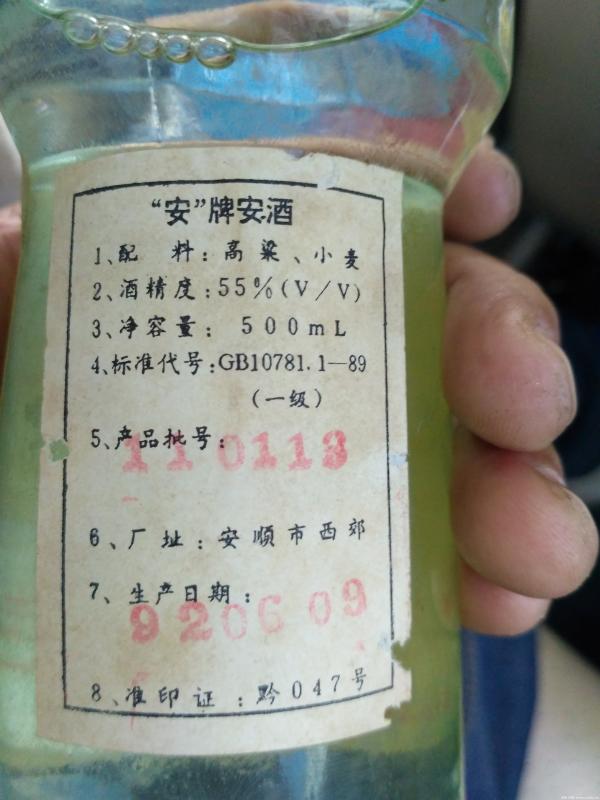 “安”牌安酒
1、配 料：高粱、小麦
2、酒精度：55%(V/V)
3、净容量：500mL
4、标准代号：GB10781.1—89
（一级）
5、产品批号：
110113
6、厂址：安顺市西郊
7、生产日期：
920609
8、准印证：黔047号